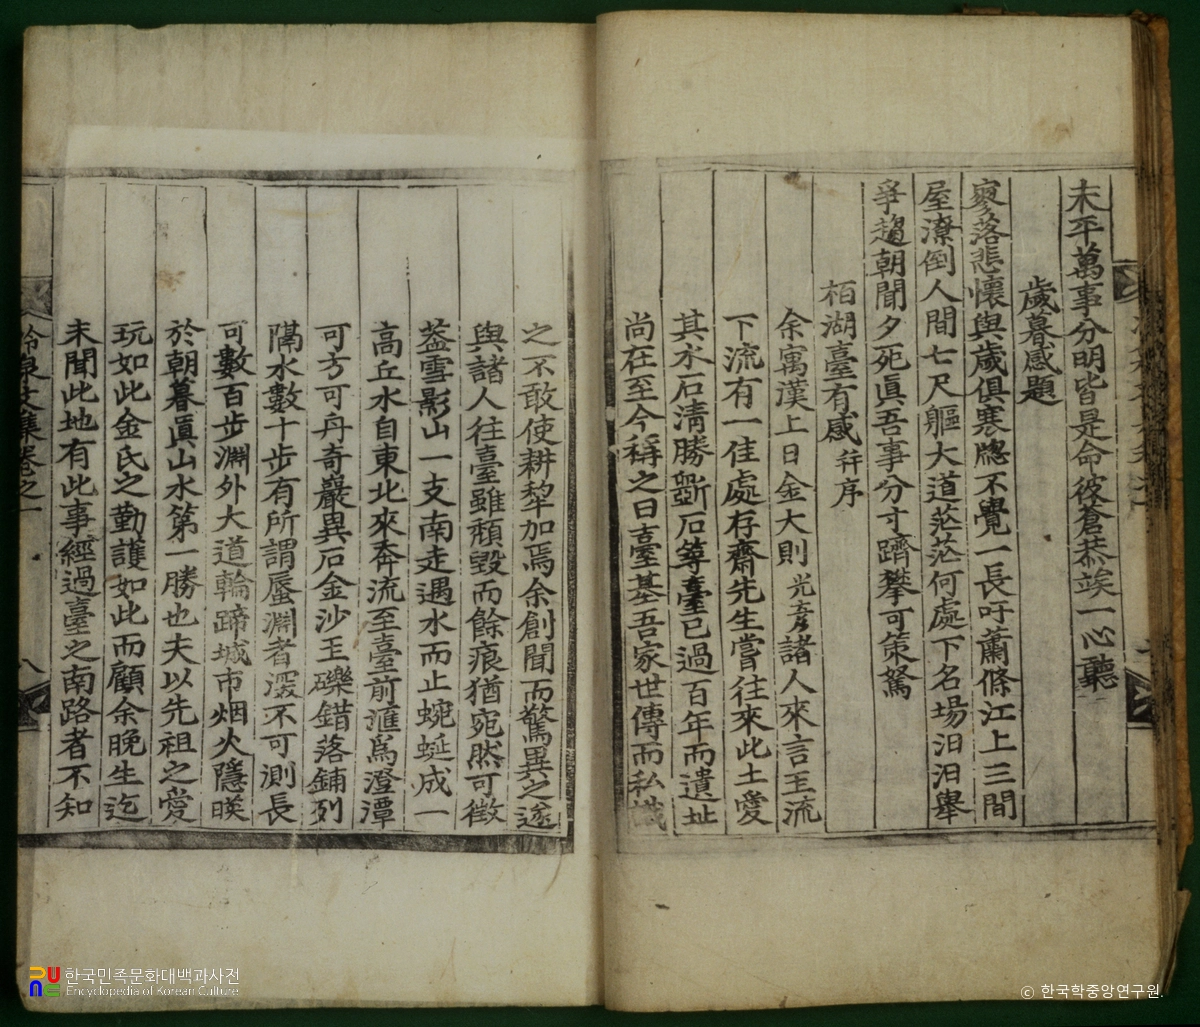 未平萬事分明皆是命彼蒼恭竢一心聽
歲暮感題
寥落悲懷與歲俱寒牕不覺一長吁蕭條江上三間
屋潦倒人間七尺軀大道茫茫何處下名場汨汨擧
爭趨朝聞夕死眞吾事分寸躋攀可策駑
栢湖臺有感 幷序
余寓漢上日金大則 光彦 諸人來言王流
下流有一佳處存齋先生嘗往來此土愛
其水石淸勝斲石等臺已過百年而遺址
尚在至今稱之曰臺基吾家世傳而私識
之不敢使耕犂加焉余創聞而驚異之遂
與諸人往臺雖頹毀而餘痕猶宛然可徵
葢雪影山一支南走遇水而止蜿蜒成一
高丘水自東北來奔流至臺前滙爲澄潭
可方可舟奇巖異石金沙玉礫錯落鋪列
隔水數十步有所謂蜃淵者深不可測長
可數百步淵外大道輪蹄城市烟火隱暎
於朝暮眞山水第一勝也夫以先祖之愛
玩如此金氏之勤護如此而顧余晚生迄
未聞此地有此事經過臺之南路者不知
泉文集卷之一
八
한국민족문화대백과사전
Encyclopedia of Korean Culture
© 한국학중앙연구원.